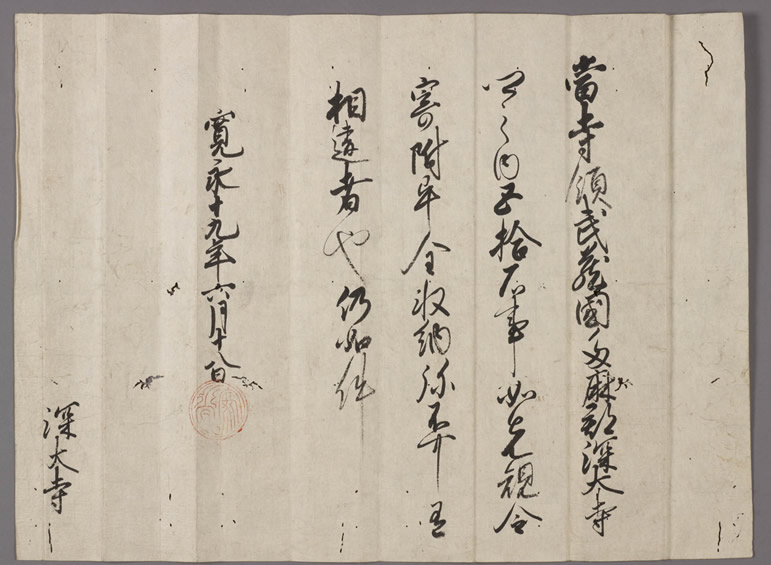 當寺領武蔵國多麻郡深大寺
郷之内五拾石事如先規令
寄附早全収納弥不可有
相違者也仍如件
寛永十九年六月十八日
深大寺